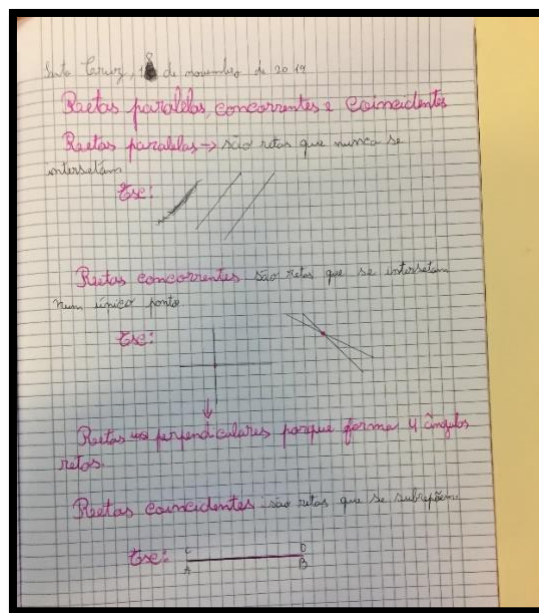 Santa Cruz, 18 de novembro de 2019
Retas paralelas, concorrentes e Coincidentes
Retas paralelas → são retas que nunca se
intersetam
Exe:
Retas concorrentes são retas que se intersetam
num único ponto.
Exe:
Retas perpendiculares porque forma 4 ângulos
retos.
Retas coincidentes são retas que se
Exe:
C D
A B